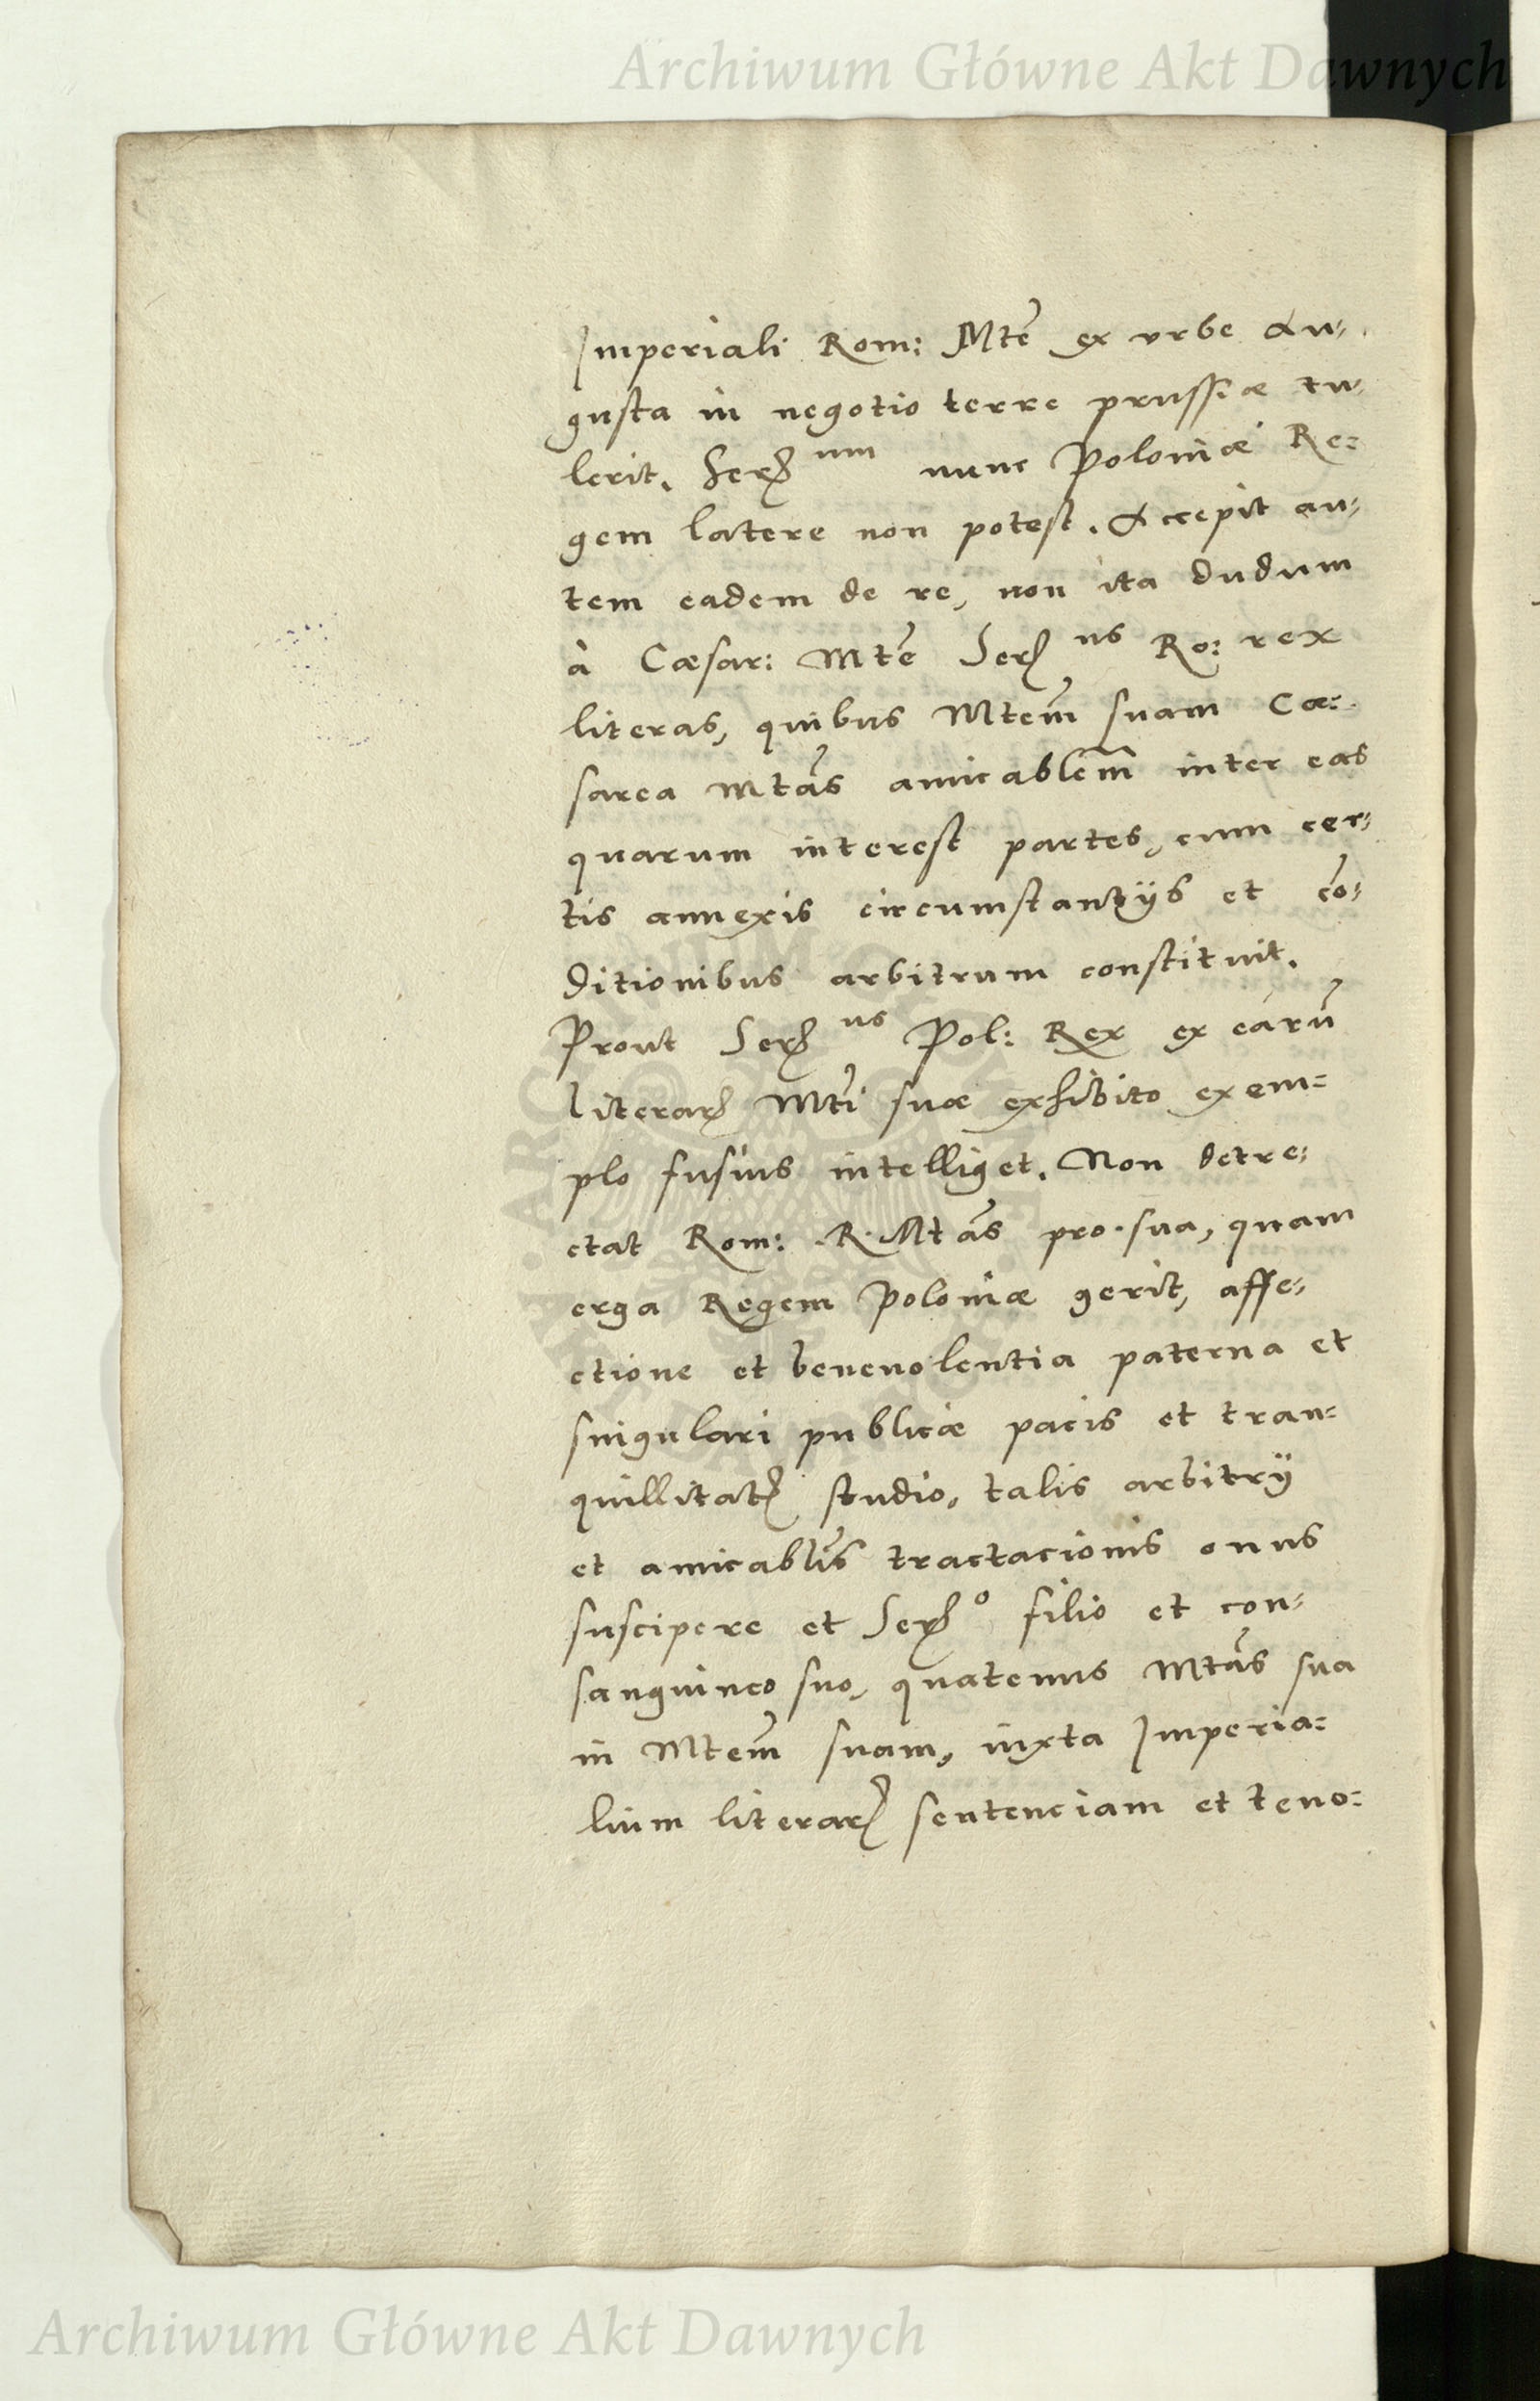 Archiwum Główne Akt Dawnych
Imperiali Rom: Mtē ex vrbe Au-
gusta in negotio terre prussiæ tu-
lerit. Ser um nunc Poloniæ Re:
gem latere non potest. Accepit au-
tem eadem de re, non ita dudum
à Cæsar: Mtē Ser us Ro: rex
literas, quibus Mtem̄ suam Cæ:
sarea Mtās amicablem̄ inter eas
quarum interest partes, cum cer-
tis annexis circumstantijs et cō-
ditionibus arbitrum constituit.
Prout Ser us Pol: Rex ex earū
literar Mti suæ exhibito exem=
plo fusius intelliget. Non detre-
ctat Rom: R. Mtās pro sua, quam
erga Regem Poloniæ gerit, affe-
ctione et beneuolentia paterna et
singulari publicæ pacis et tran=
quillitat studio, talis arbitrij
et amicablis tractacionis onus
suscipere et Ser o filio et con-
sanguineo suo, quatenus Mtās sua
in Mtem̄ suam, iuxta Imperia=
lium literar sentenciam et teno:
Archiwum Główne Akt Dawnych